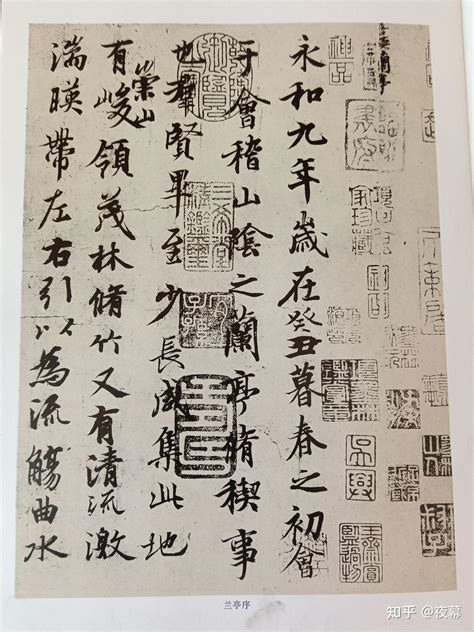 永和九年歲在癸丑暮春之初會
于會稽山陰之蘭亭脩稧事
也羣賢畢至少長咸集此地
有崇山峻領茂林脩竹又有清流激
湍暎帶左右引以為流觴曲水
兰亭序
知乎 @夜幕